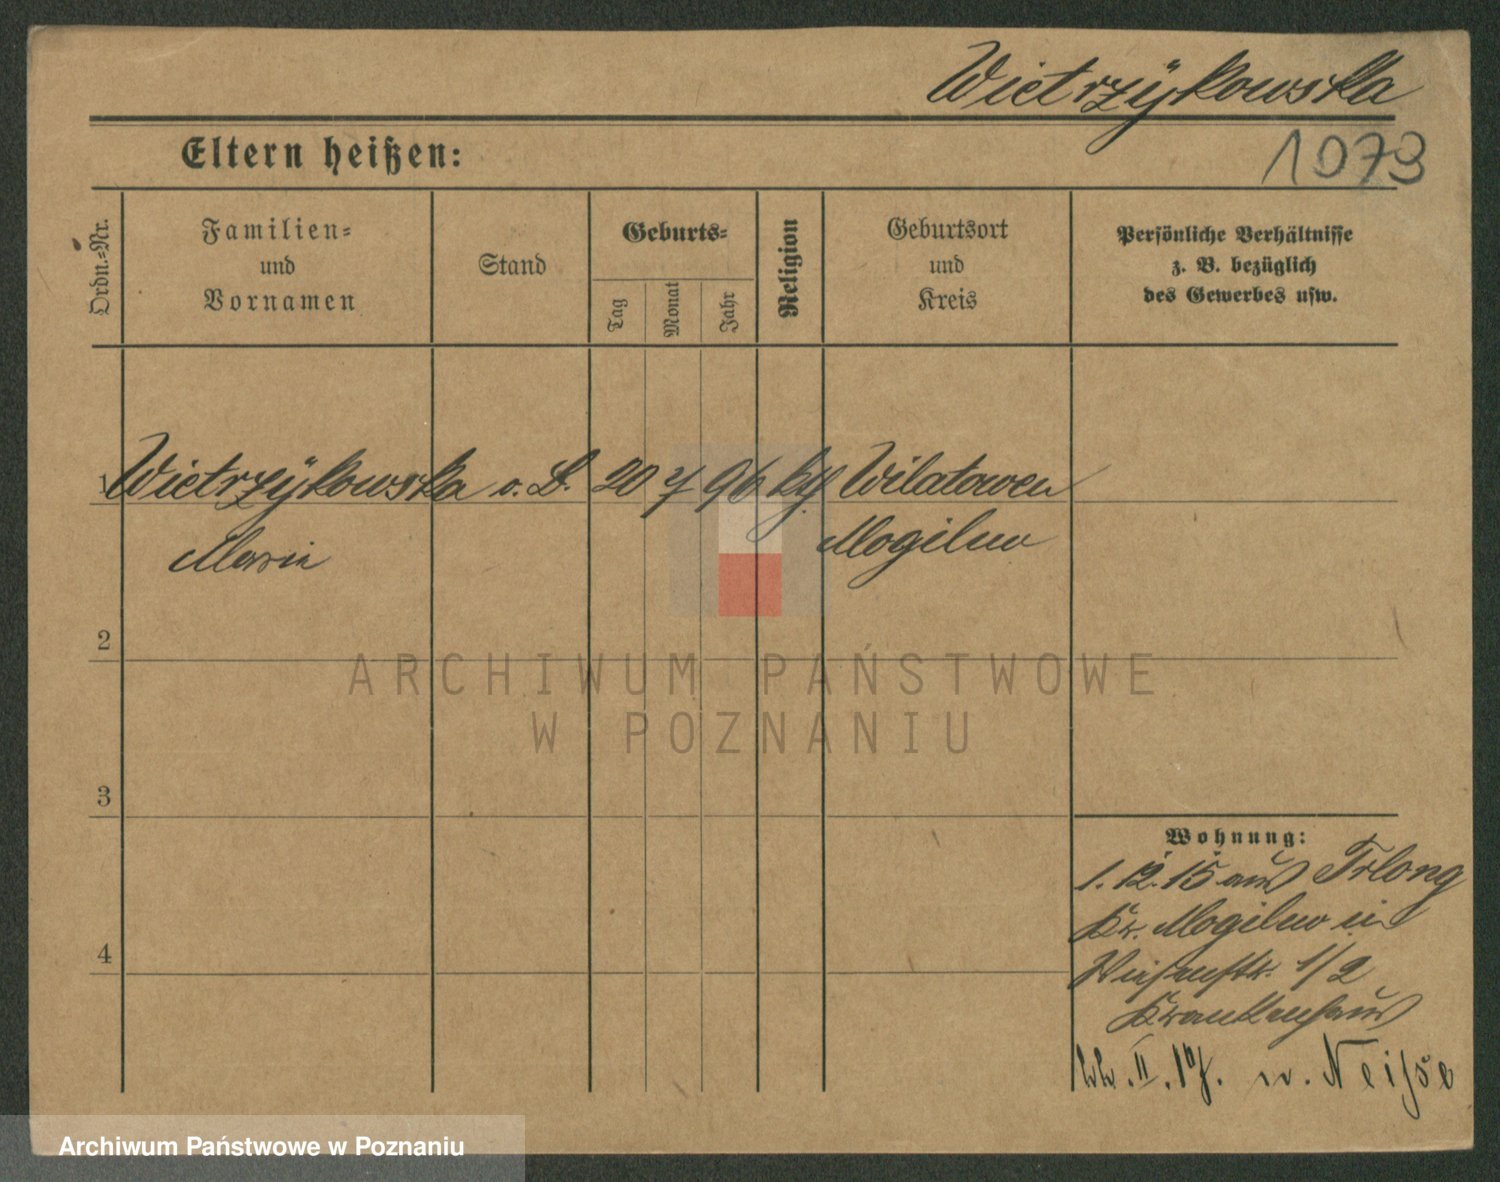 Wietrzÿkowska
1073
Eltern heißen:
Ordn.-Nr.
Familien-
und
Vornamen
Stand
Geburts-
Tag
Monat
Jahr
Religion
Geburtsort
und
Kreis
Persönliche Verhältnisse
z. B. bezüglich
des Gewerbes usw.
1 Wietrzÿkowska o. B. 20 7 96 kth Wilatowen
Marie Mogilno
2
3
4
Wohnung:
1. 12. 15 aus Trlong
Kr. Mogilno in
1/2
Krankenhaus
II. 17. n. Neisse
ARCHIWUM PAŃSTWOWE
W POZNANIU
Archiwum Państwowe w Poznaniu